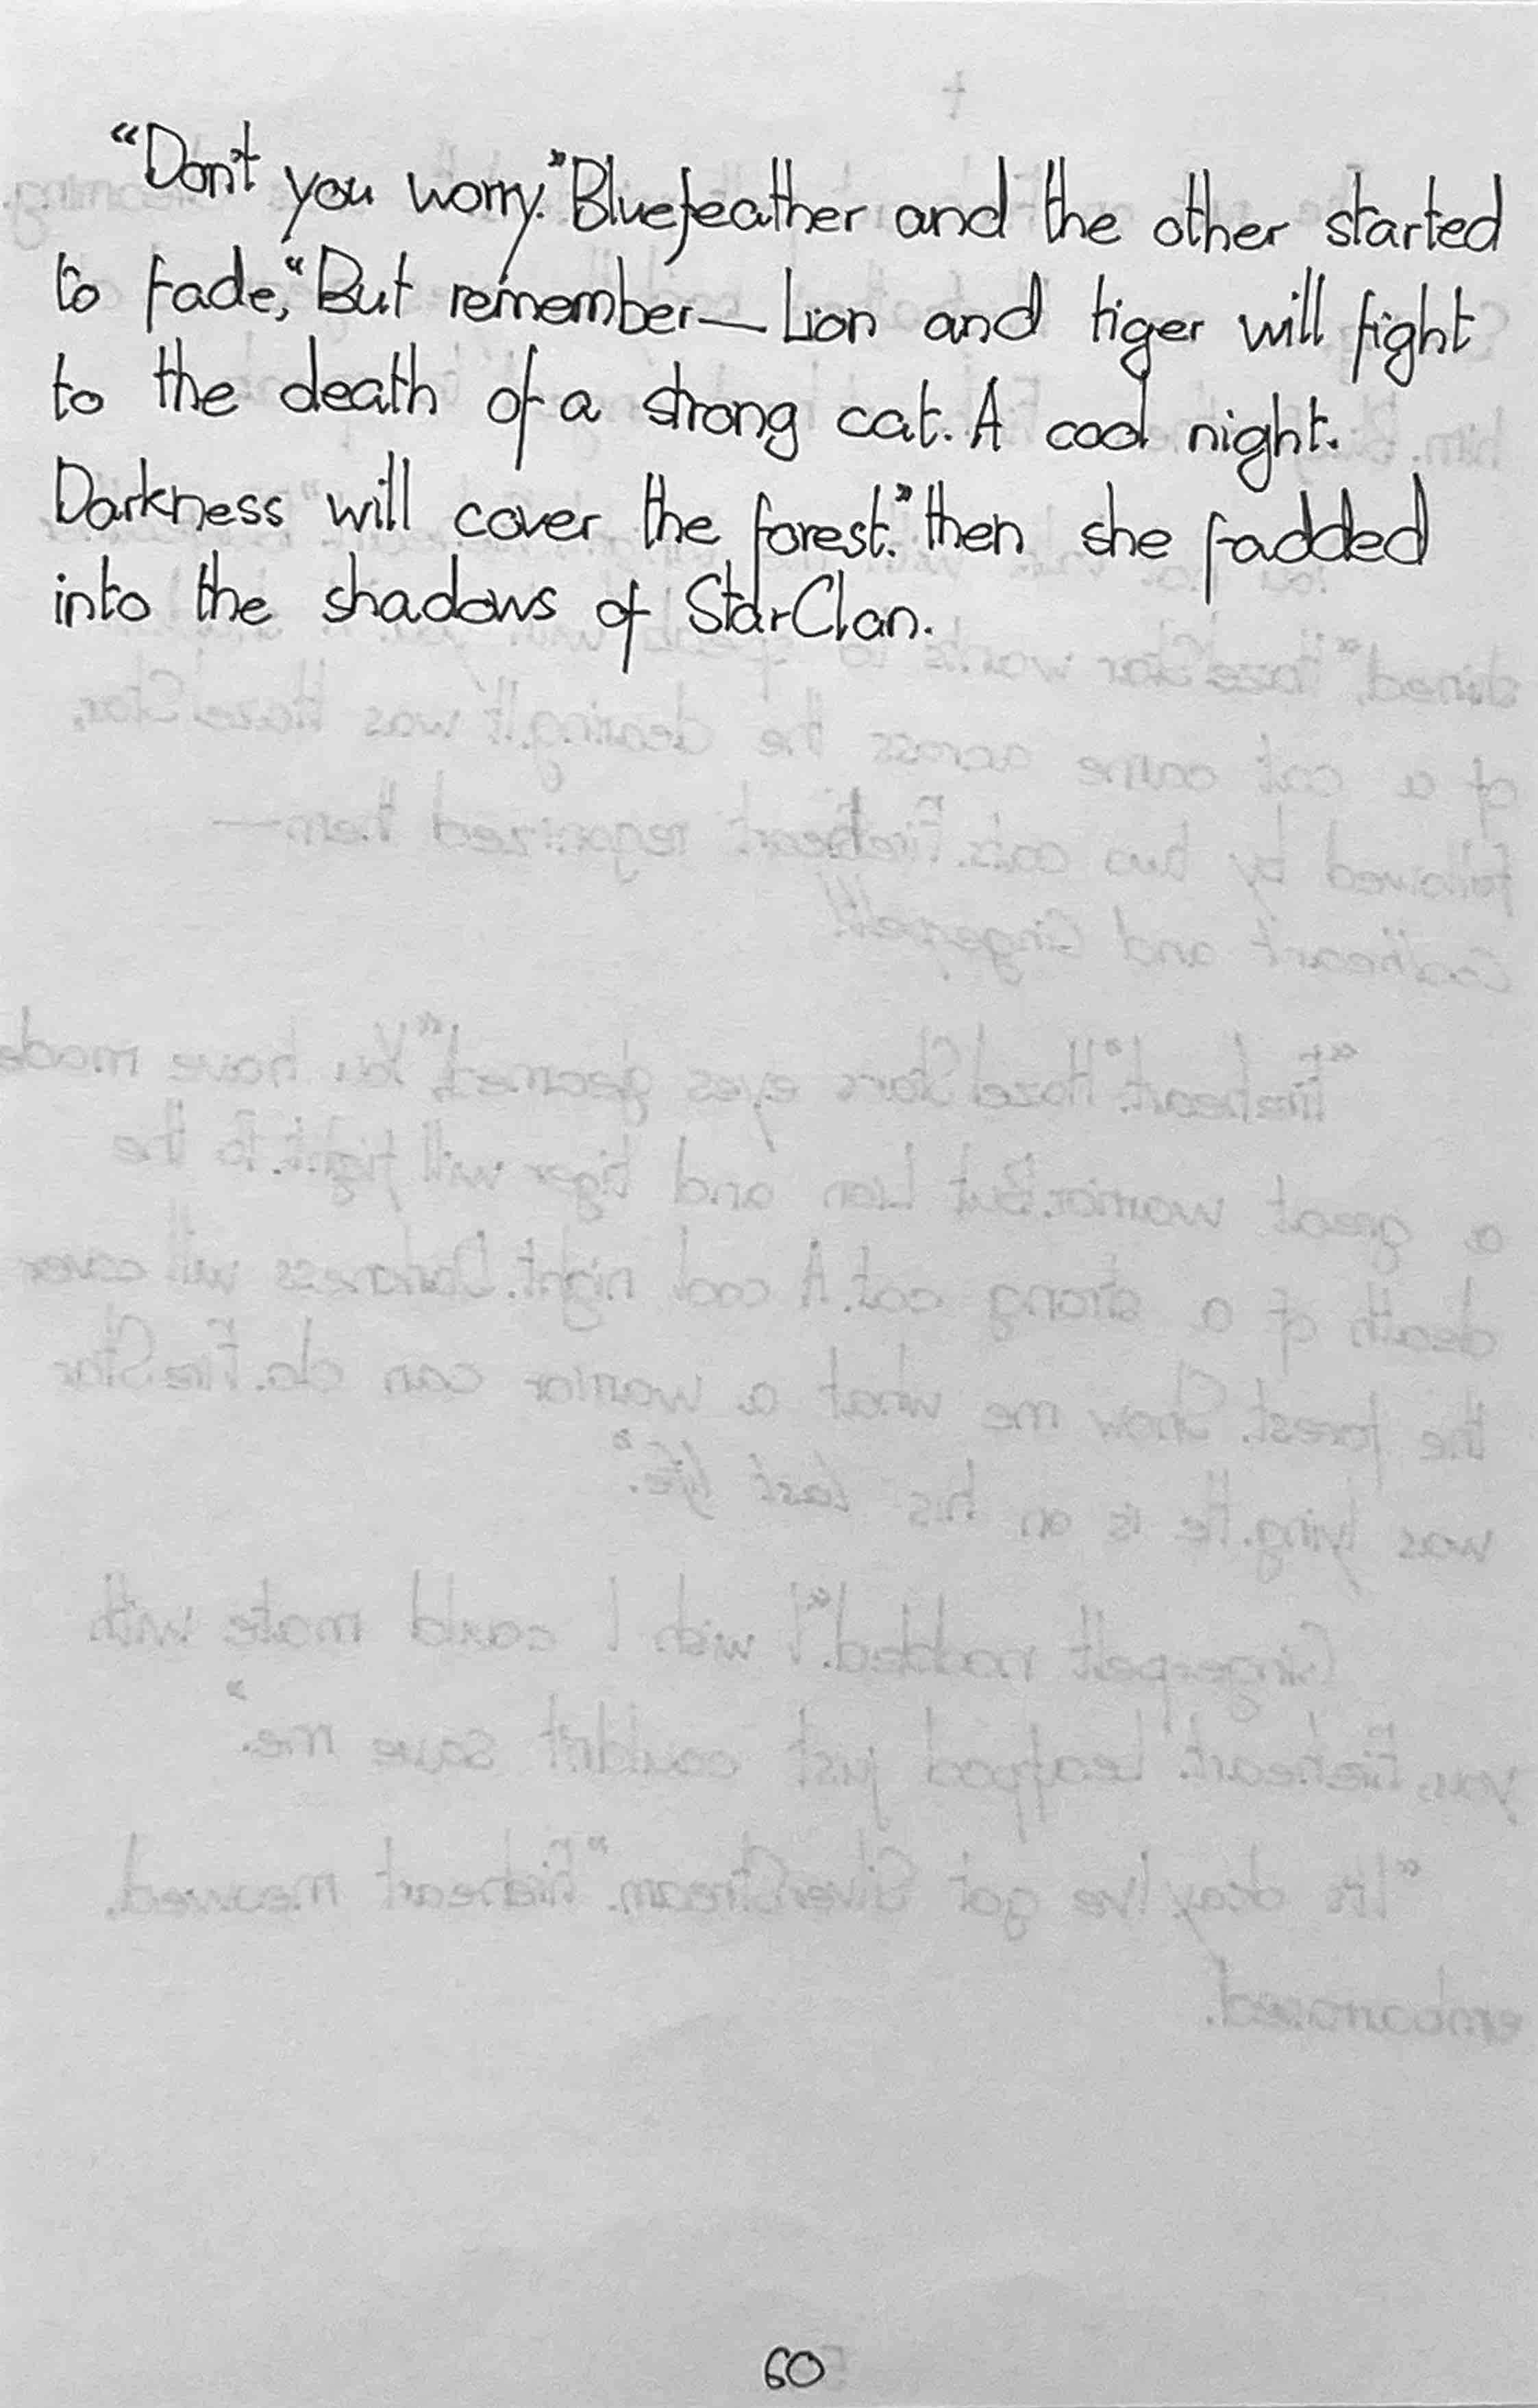 "Don't you worry." Bluefeather and the other started
to fade, "But remember — Lion and tiger will fight
to the death of a strong cat. A cool night.
Darkness will cover the forest." then she fadded
into the shadows of StarClan.
60